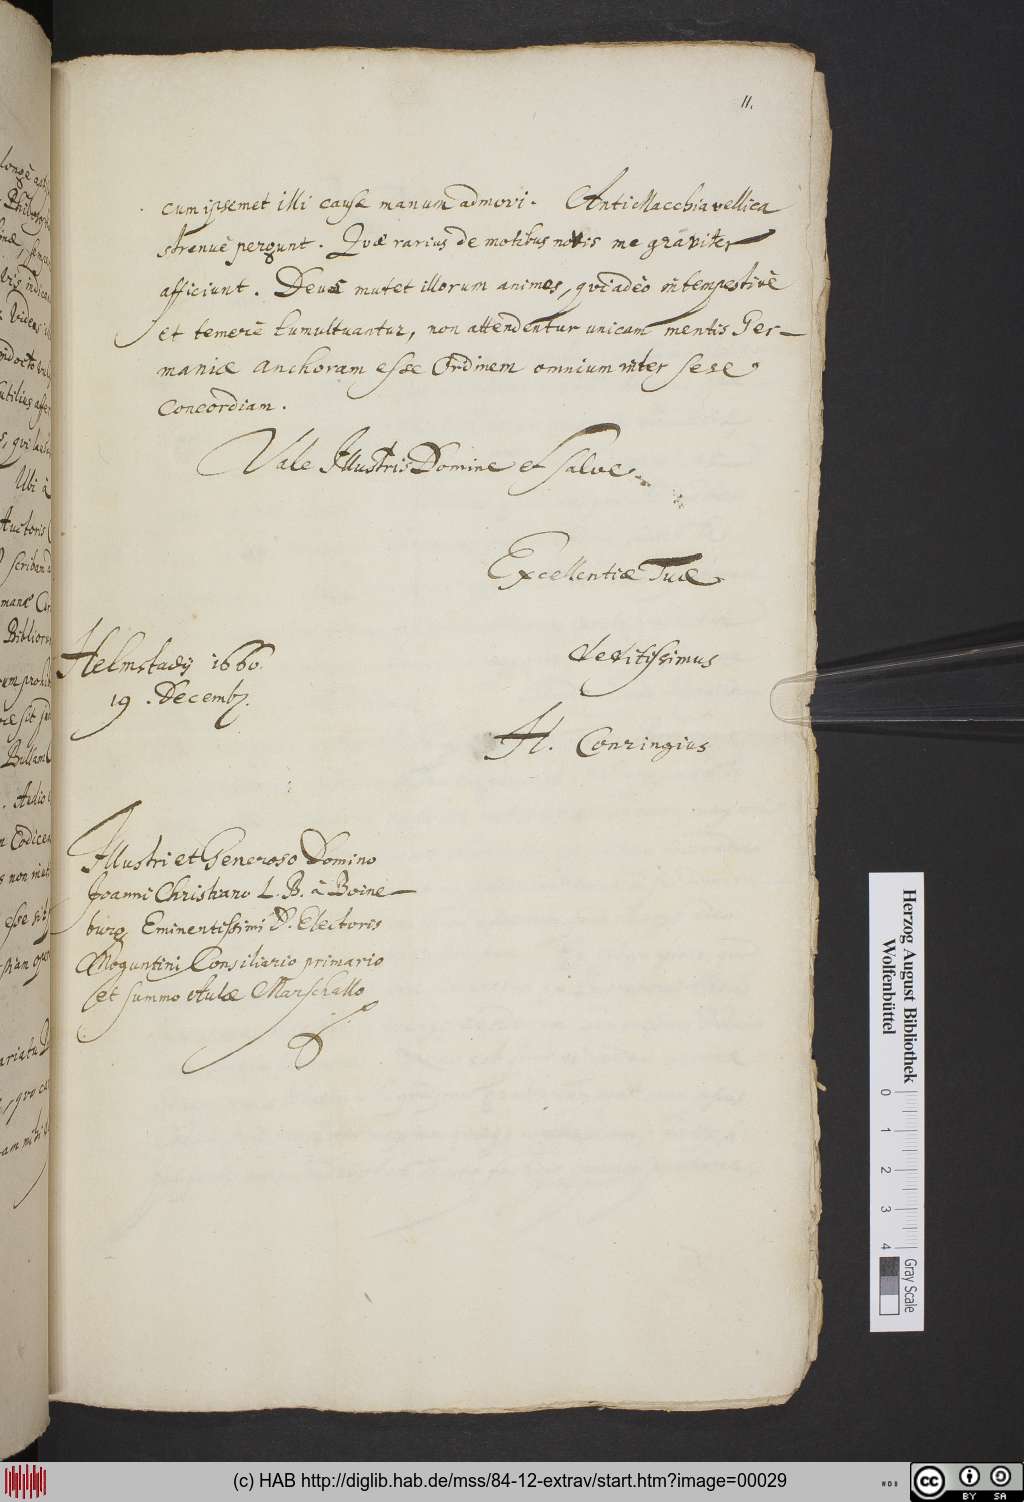 11.
cum ipsemet illi causæ manum admovi. AntiMacchiavellica
strenuè pergunt. Quæ rarius de motibus novis me graviter
afficiunt. Deus mutet illorum animos, qui adeò intempestivè
et temerè tumultuantur, non attendentur unicam mentis Ger-
maniæ anchoram esse Ordinem omnium inter sese
Concordiam.
Vale Illustris Domine et Salve.
Excellentiæ Tuæ
Helmstadij 1660.
19. Decemb.
deditissimus
H. Conringius
Illustri et Generoso Domino
Joanni Christiano L. B. à Boine-
burg Eminentissimi D. Electoris
Moguntini Consiliario primario
et summo Aulæ Marschallo
longè
Ubi à
Auctoris
scribam
Codice
non
esse
Herzog August Bibliothek
Wolfenbüttel
0 1 2 3 4
Gray Scale
(c) HAB http://diglib.hab.de/mss/84-12-extrav/start.htm?image=00029
cc BY SA